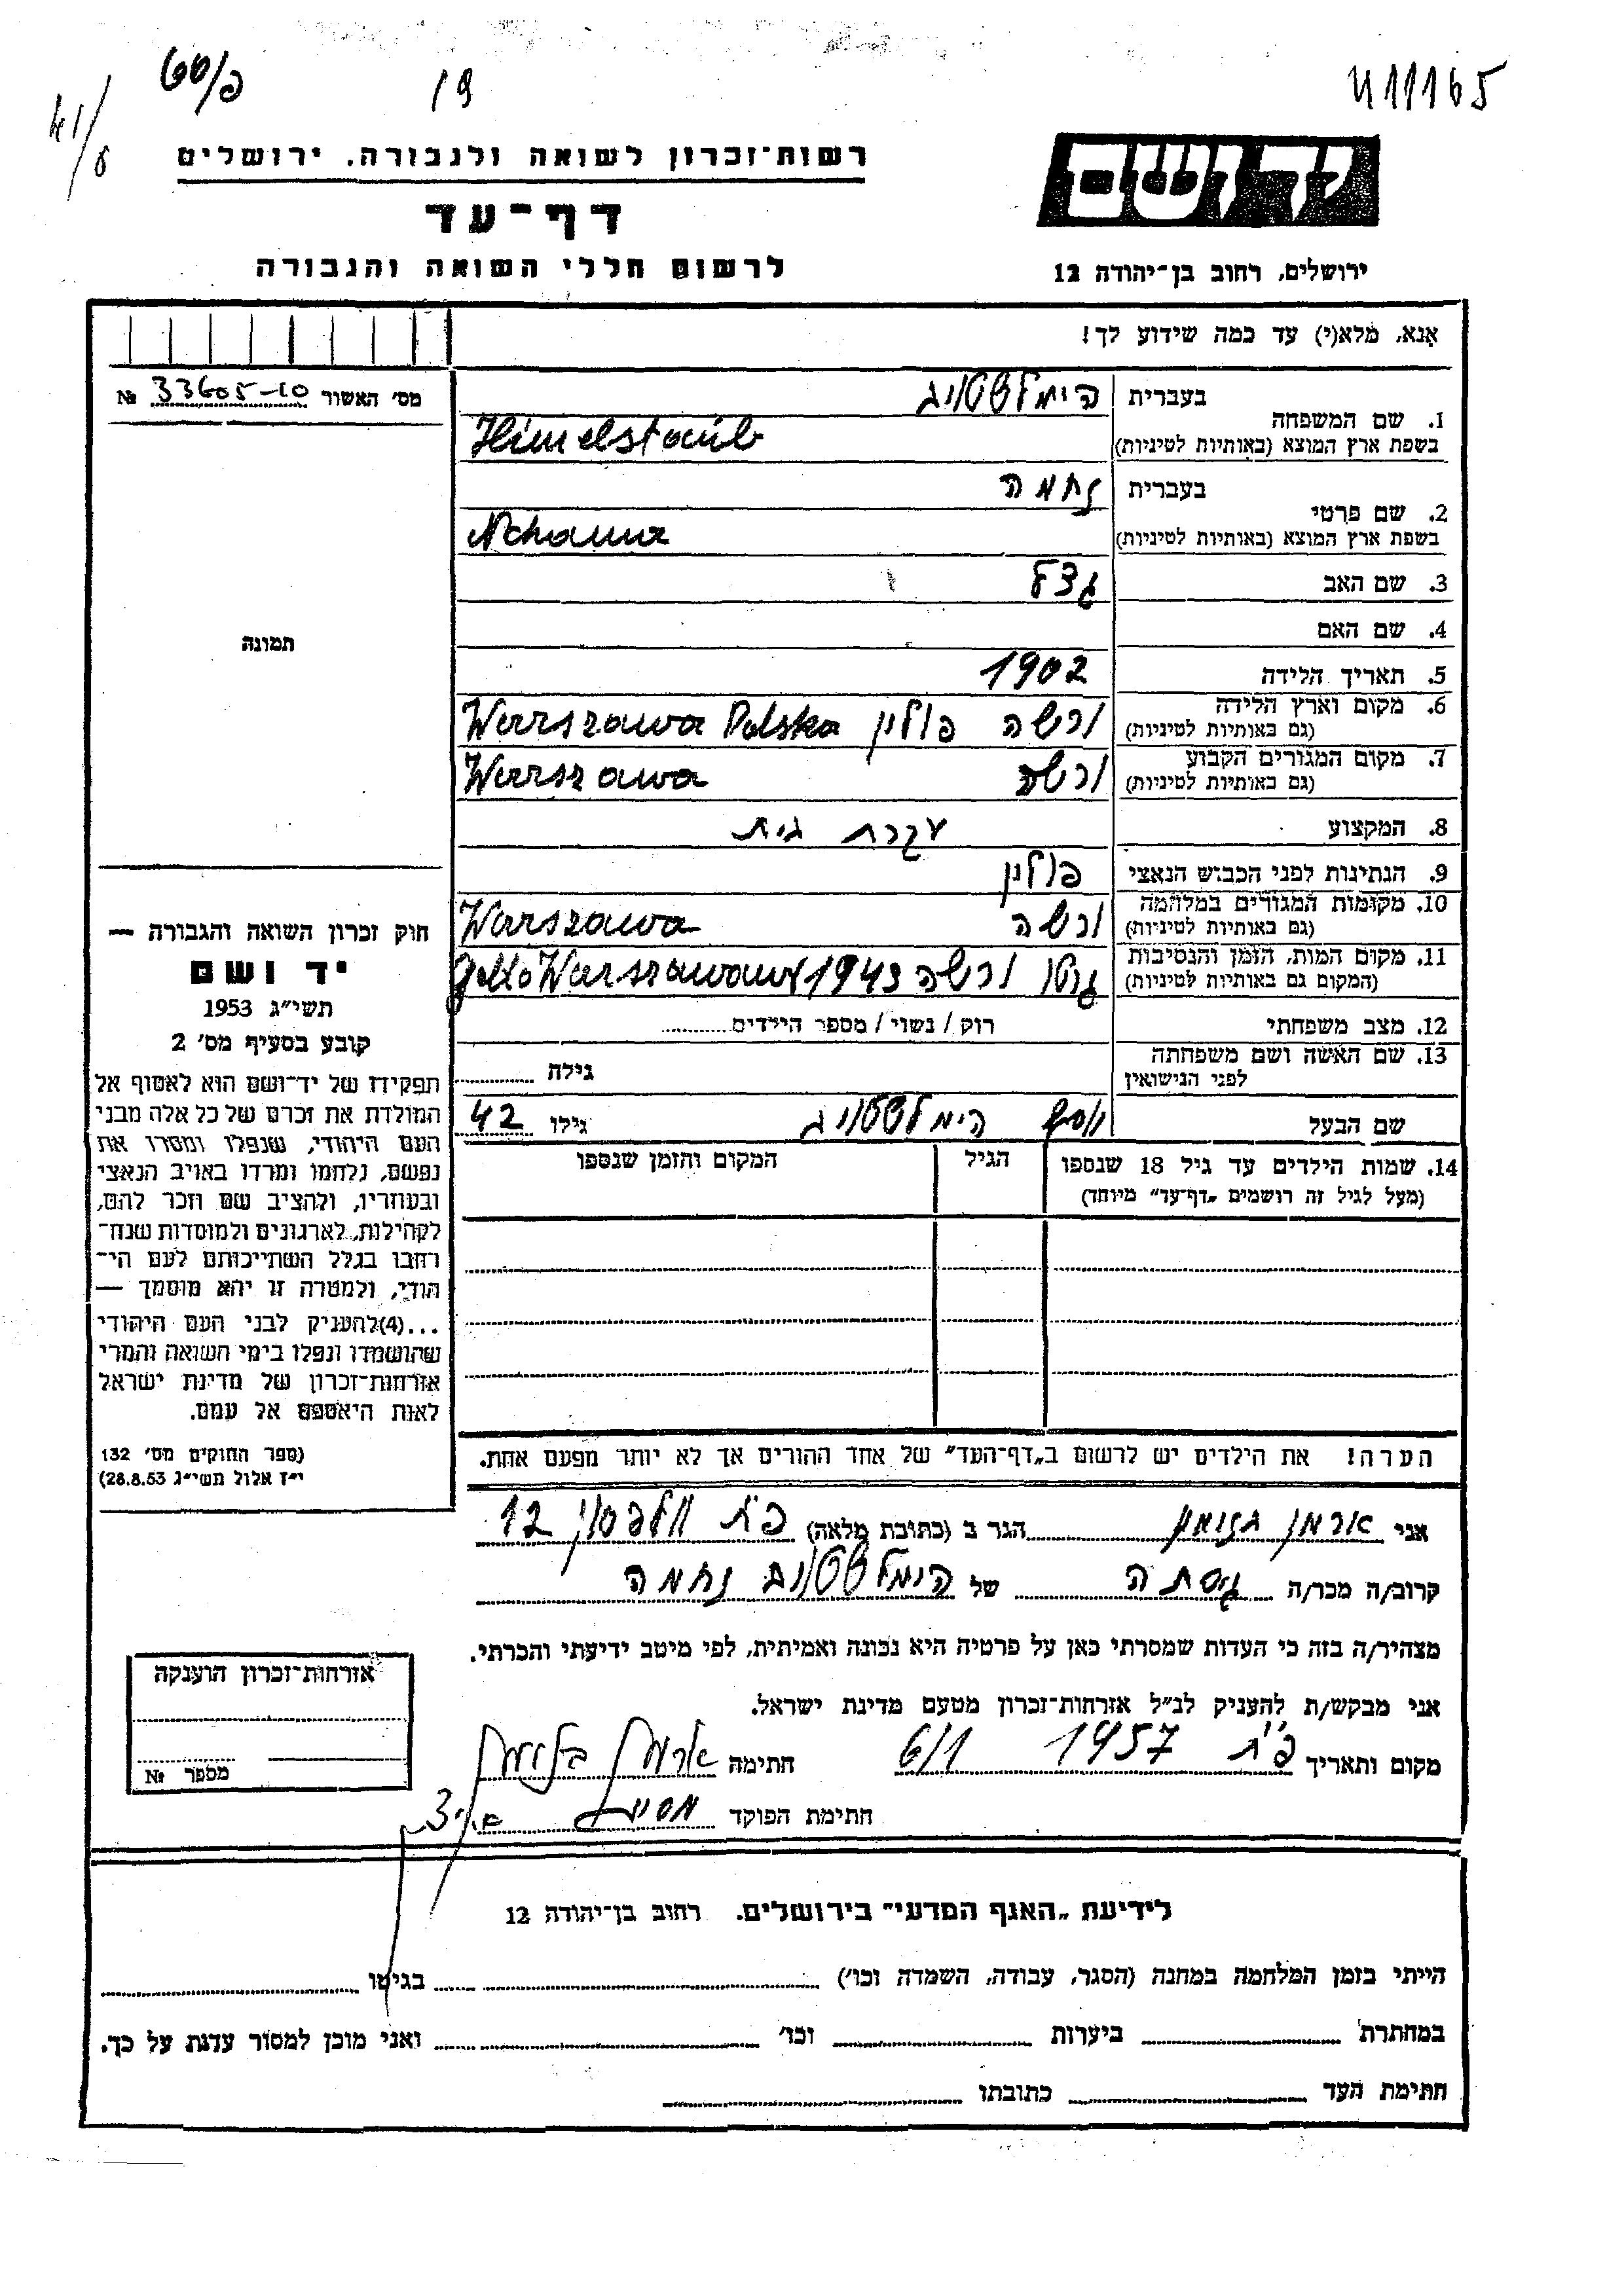 ס/60
19
411165
41/6
רשות־זכרון לשואה ולגבורה, ירושלים
דף־עד
לרשום חללי השואה והגבורה
יד ושם
ירושלים, רחוב בן־יהודה 12
אנא, מלא(י) עד כמה שידוע לך!
מס' האשור 33605-10 №
תמונה
1. שם המשפחה
בעברית הימלשטויב
בשפת ארץ המוצא (באותיות לטיניות) Himelstaub
2. שם פרטי
בעברית נחמה
בשפת ארץ המוצא (באותיות לטיניות) Nchama
3. שם האב גצל
4. שם האם
5. תאריך הלידה 1902
6. מקום וארץ הלידה
(גם באותיות לטיניות) ורשה פולין Warszawa Polska
7. מקום המגורים הקבוע
(גם באותיות לטיניות) ורשה Warszawa
8. המקצוע עקרת בית
9. הנתינות לפני הכבוש הנאצי פולין
10. מקומות המגורים במלחמה
(גם באותיות לטיניות) ורשה Warszawa
11. מקום המות, הזמן והנסיבות
(המקום גם באותיות לטיניות) גטו ורשה 1943 Getto
12. מצב משפחתי רוק / נשוי / מספר הילדים
13. שם האשה ושם משפחתה
לפני הנישואין גילה
שם הבעל יוסף הימלשטויב גילו 42
14. שמות הילדים עד גיל 18 שנספו הגיל המקום והזמן שנספו
(מעל לגיל זה רושמים „דף־עד" מיוחד)
הערה! את הילדים יש לרשום ב„דף־העד" של אחד ההורים אך לא יותר מפעם אחת.
חוק זכרון השואה והגבורה —
יד ושם
תשי״ג 1953
קובע בסעיף מס' 2
תפקידו של יד־ושם הוא לאסוף אל
המולדת את זכרם של כל אלה מבני
העם היהודי, שנפלו ומסרו את
נפשם, נלחמו ומרדו באויב הנאצי
ובעוזריו, ולהציב שם וזכר להם,
לקהילות, לארגונים ולמוסדות שנח־
רבו בגלל השתייכותם לעם הי־
הודי, ולמטרה זו יהא מוסמך —
...(4)להעניק לבני העם היהודי
שהושמדו ונפלו בימי השואה והמרי
אזרחות־זכרון של מדינת ישראל
לאות היאספם אל עמם.
(ספר החוקים מס' 132
י״ז אלול תשי״ג 28.8.53)
אני ארמן הגר ב (כתובת מלאה) פ״ת 12
קרוב/ה מכר/ה גיסתה של הימלשטויב נחמה
מצהיר/ה בזה כי העדות שמסרתי כאן על פרטיה היא נכונה ואמיתית, לפי מיטב ידיעתי והכרתי.
אני מבקש/ת להעניק לנ״ל אזרחות־זכרון מטעם מדינת ישראל.
מקום ותאריך פ״ת 1957 6/1 חתימה
חתימת הפוקד
אזרחות־זכרון הוענקה
מספר №
לידיעת „האגף המדעי" בירושלים, רחוב בן־יהודה 12
הייתי בזמן המלחמה במחנה (הסגר, עבודה, השמדה וכו') בגיטו
במחתרת ביערות וכו' ואני מוכן למסור עדות על כך.
חתימת העד כתובתו